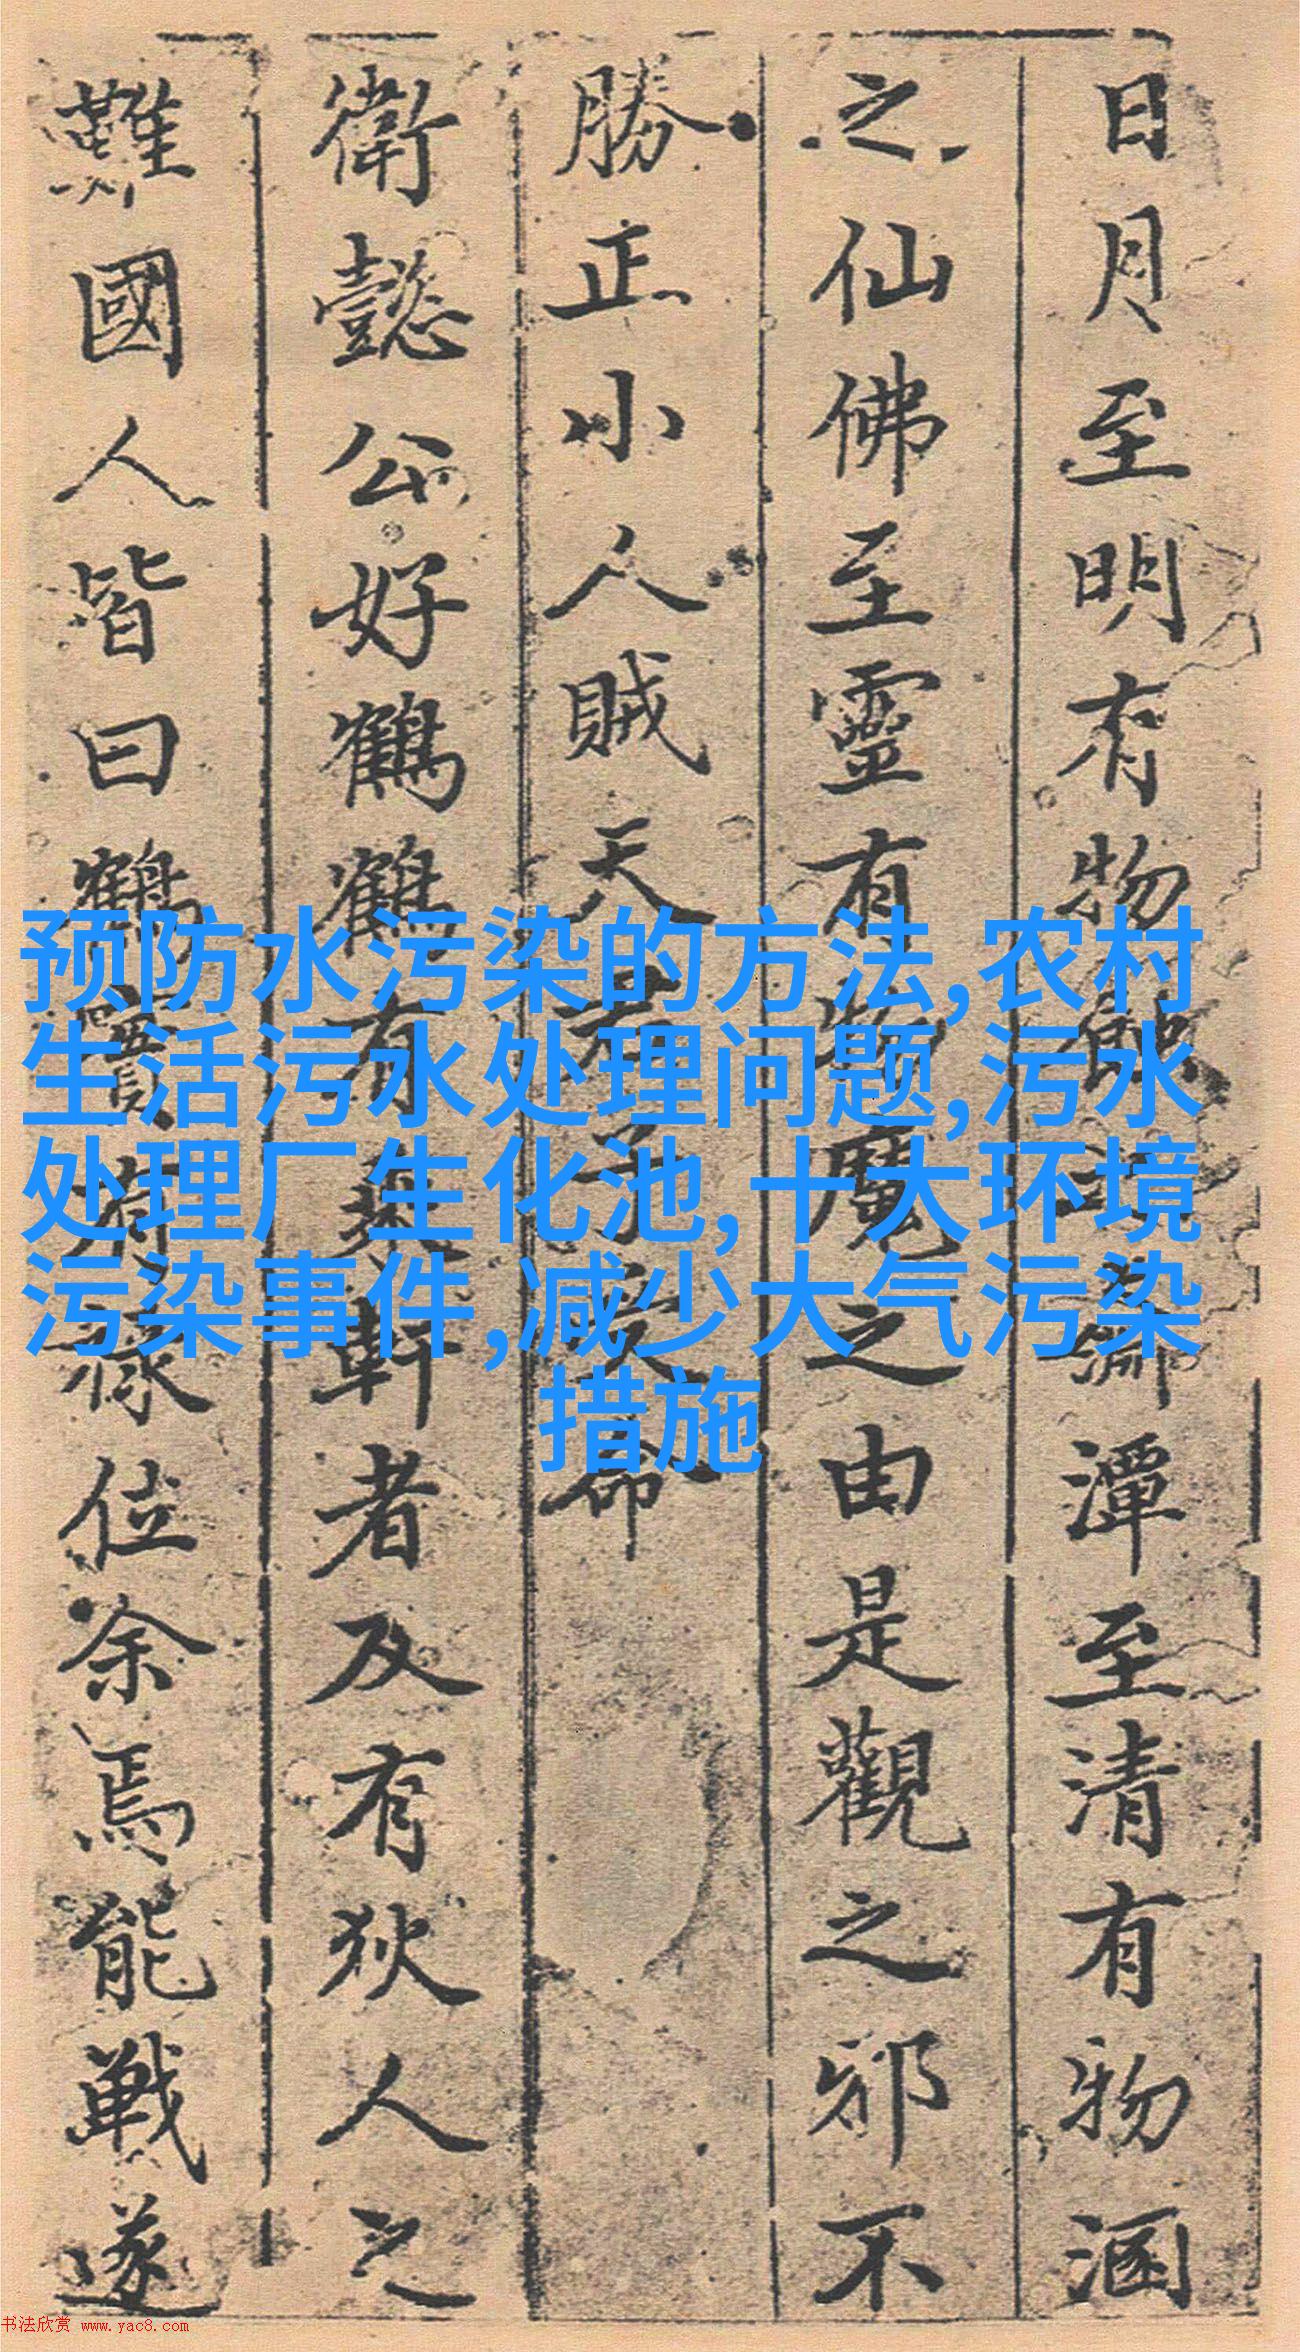 日月至明有物蝕之潭至清有物涵
之仙佛至靈有物魔之由是觀之邪不
勝正小人賊天命
衛懿公好鶴鶴有乘軒者及有狄人之
難國人皆曰鶴實有祿位余焉能戰遂
预防水污染的方法,农村
生活污水处理问题,污水
处理厂生化池,十大环境
污染事件,减少大气污染
措施
书法欣赏 www.yac8.com